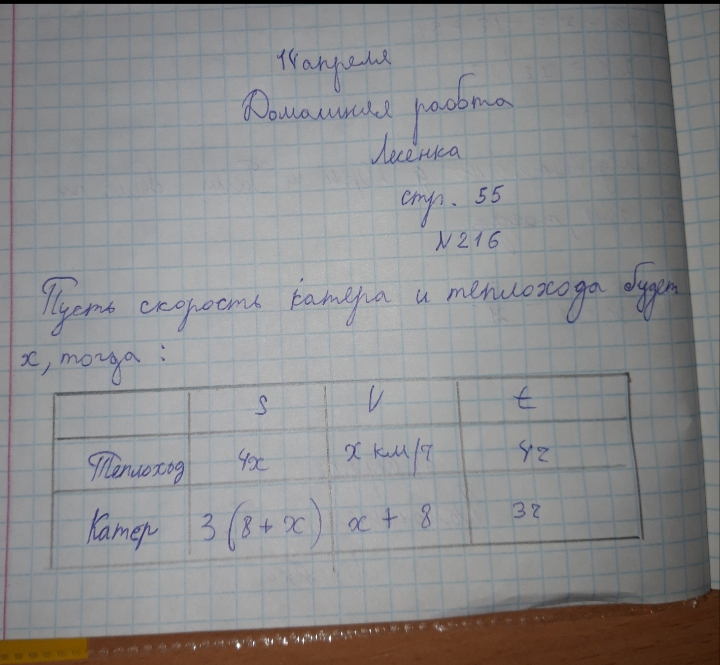 14 апреля
Домашняя раобта
Лесенка
стр. 55
№216
Пусть скорость катера и теплохода будет
х, тогда :
S V t
Теплоход 4х х км/ч 4ч
Катер 3(8+х) х + 8 3ч